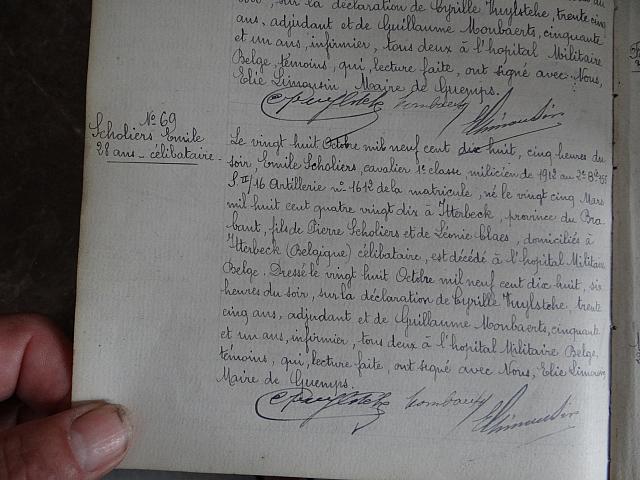 sur la déclaration de Cyrille Thuylstche, trente cinq
ans, adjudant et de Guillaume Mombaerts, cinquante
et un ans, infirmier, tous deux à l'hopital Militaire
Belge, témoins, qui, lecture faite, ont signé avec Nous,
Elie Limousin Maire de Guemps.
Mombaerts ELimousin
N° 69
Scholiers Emile
28 ans - célibataire -
Le vingt huit Octobre mil neuf cent dix huit, cinq heures du
soir, Emile Scholiers, cavalier 1e classe, milicien de 1912 au 2e
II/16 Artillerie n° 1612 de la matricule, né le vingt cinq Mars
mil huit cent quatre vingt dix à Itterbeck, province du Bra-
bant, fils de Pierre Scholiers et de Léonie Claes, domiciliés à
Itterbeck (Belgique) célibataire, est décédé à l'hopital Militaire
Belge. Dressé le vingt huit Octobre mil neuf cent dix huit, six
heures du soir, sur la déclaration de Cyrille Thuylstche, trente
cinq ans, adjudant et de Guillaume Mombaerts, cinquante
et un ans, infirmier, tous deux à l'hopital Militaire Belge,
témoins, qui, lecture faite, ont signé avec Nous, Elie Limousin
Maire de Guemps.
Mombaerts ELimousin